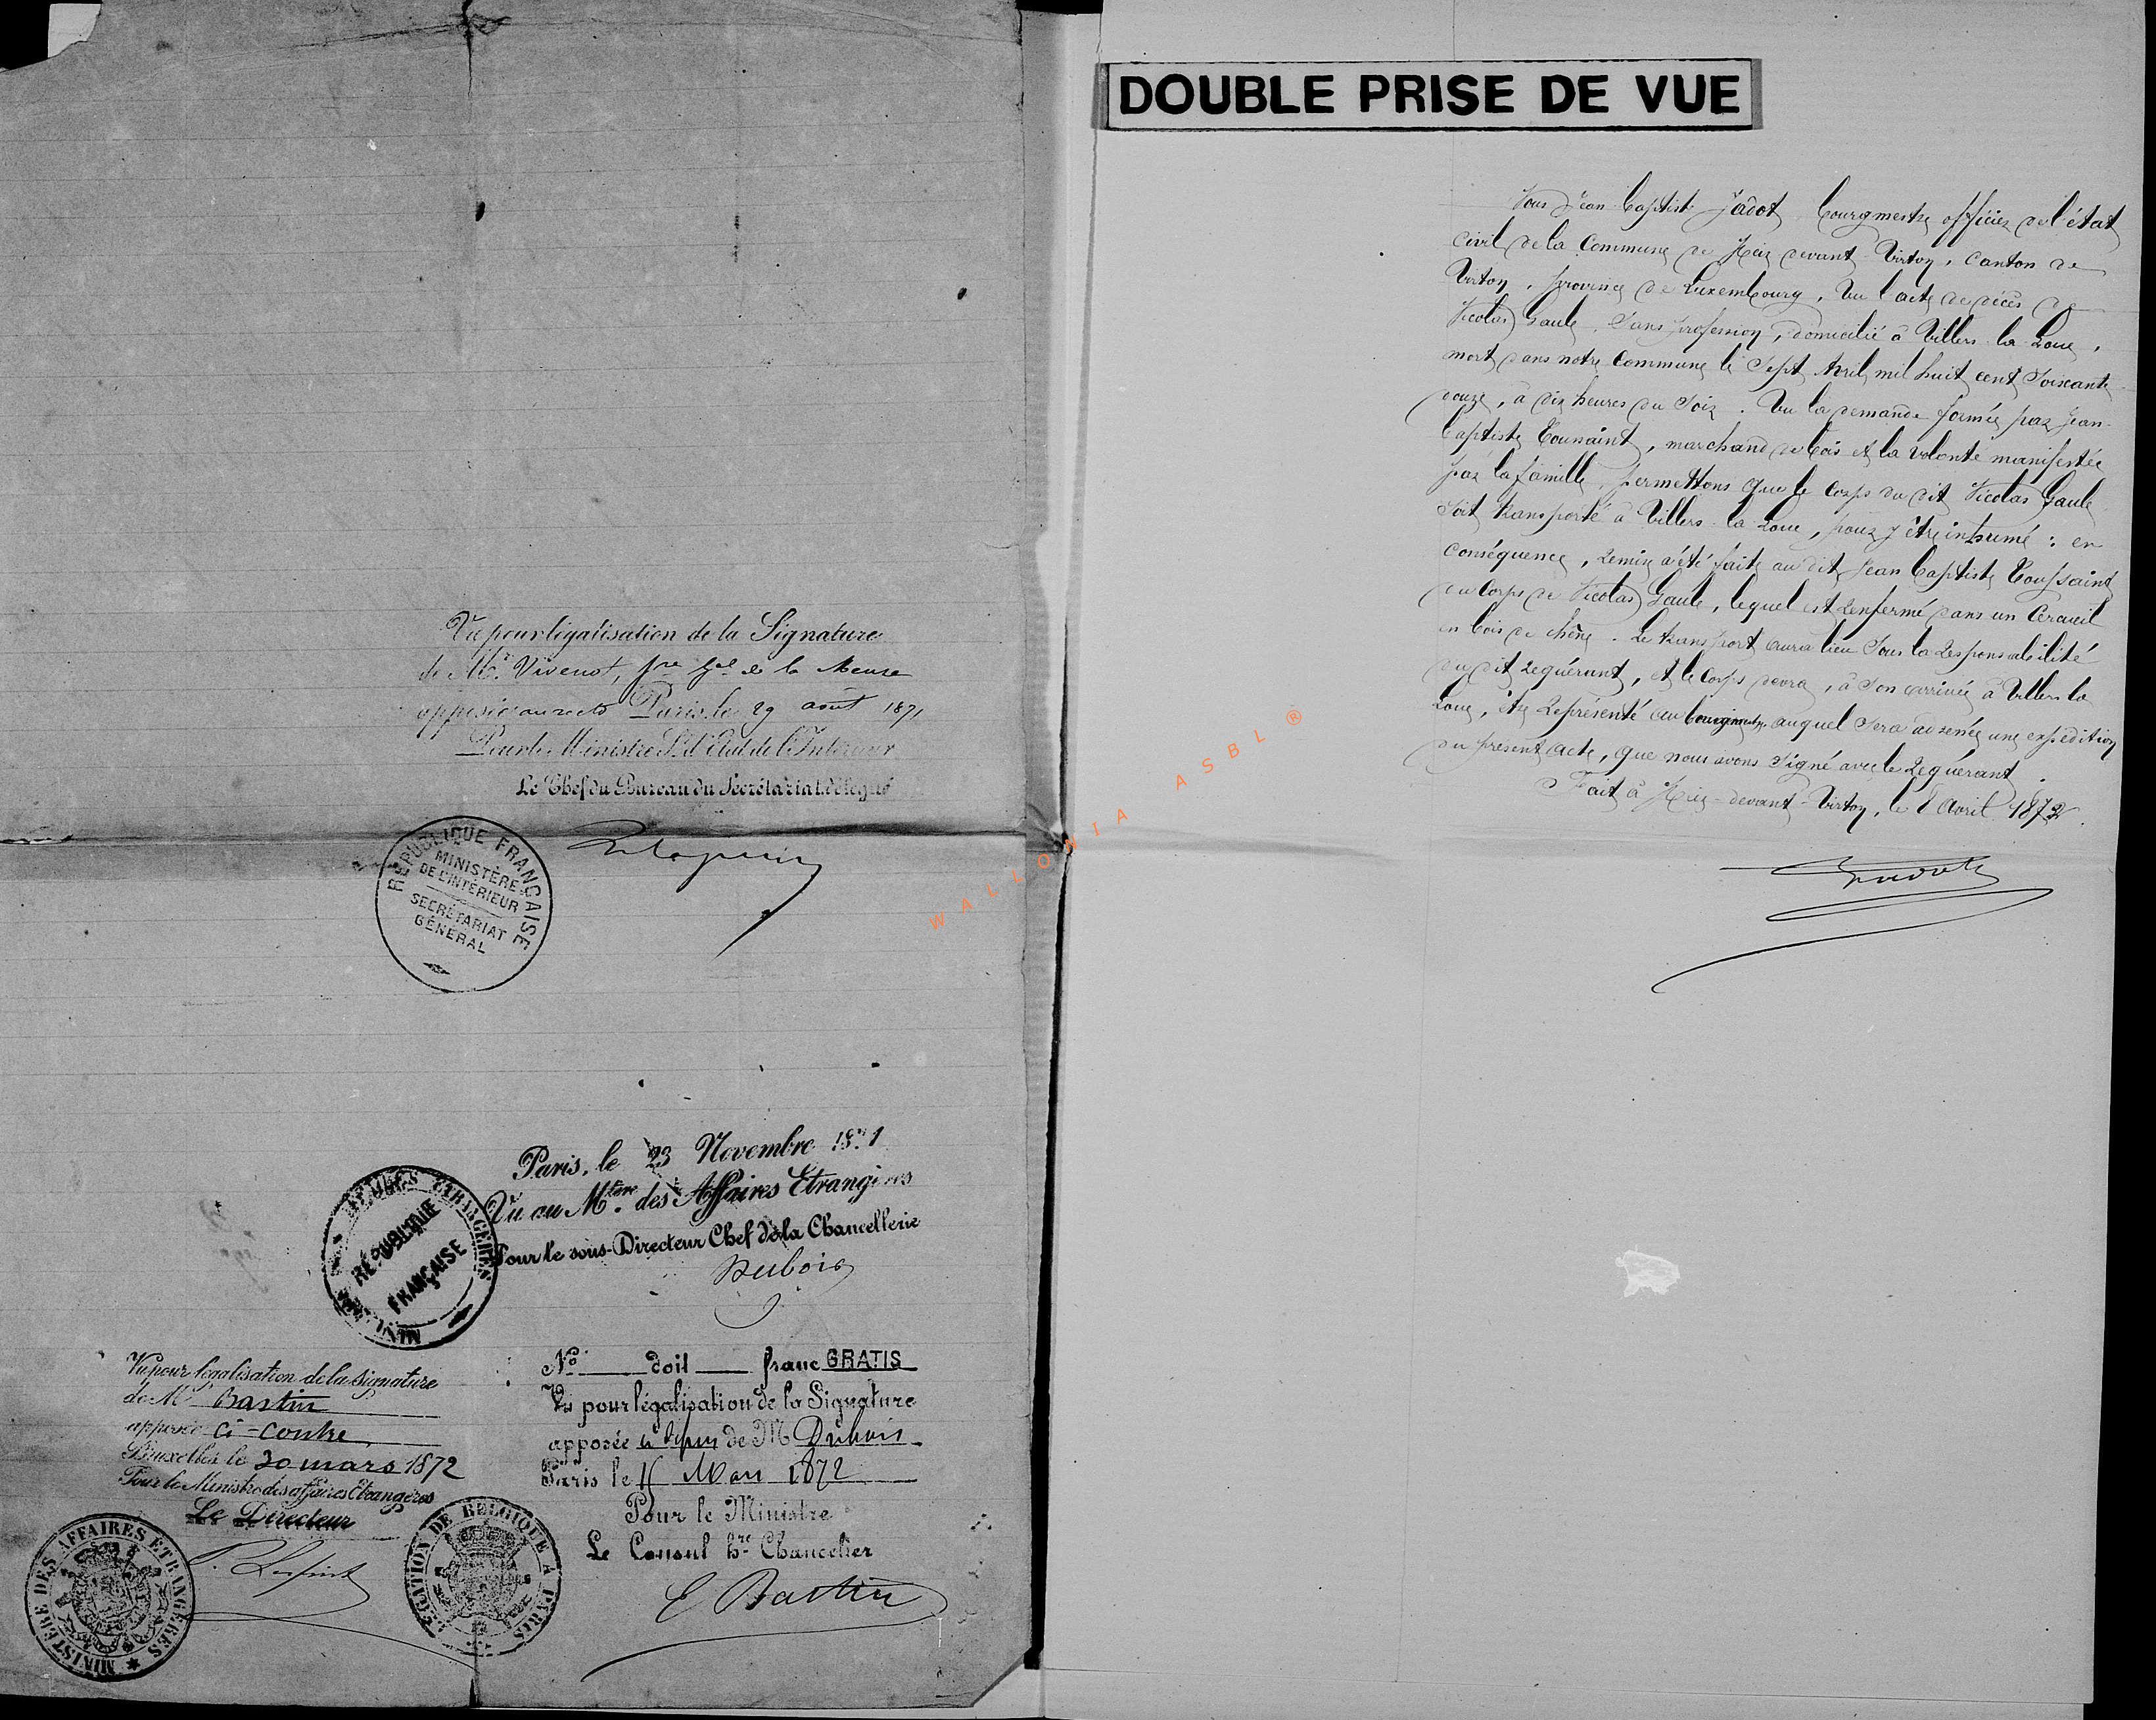 Vu pour légalisation de la Signature
de Mr. Vivenot, pre. gal. de la Meuse
apposée au recto Paris, le 29 août 1871
Pour le Ministre S. d'Etat de l'Intérieur
Le Chef du Bureau du Secrétariat délégué
RÉPUBLIQUE FRANÇAISE
MINISTÈRE
DE L'INTÉRIEUR
SECRÉTARIAT
GÉNÉRAL
Paris, le 23 Novembre 1871
Vu au Mtère des Affaires Etrangères
Pour le sous-Directeur Chef de la Chancellerie
Dubois
AFFAIRES ETRANGÈRES
RÉPUBLIQUE
FRANÇAISE
Vu pour légalisation de la signature
de Mr Bastin
apposée ci-contre
Bruxelles le 20 mars 1872
Pour le Ministre des affaires Etrangères
Le Directeur
MINISTÈRE DES AFFAIRES ETRANGÈRES
No doit franc GRATIS
Vu pour légalisation de la Signature
apposée de M Dubois
Paris le Mars 1872
Pour le Ministre
Le Consul hre Chancelier
E Bastin
LÉGATION DE BELGIQUE A PARIS
DOUBLE PRISE DE VUE
Nous Jean-Baptiste Jadot bourgmestre officier de l'état
civil de la Commune de devant Virton, canton de
Virton, province de Luxembourg, Vu l'acte de décès de
Nicolas Gaule, Sans profession, domicilié à Villers-la-Loue,
mort dans notre Commune le Sept Avril mil huit cent Soixante
douze, à dix heures du Soir. Vu la demande formée par Jean-
baptiste Toussaint, marchand de bois et la volonté manifestée
par la famille, permettons que le corps du dit Nicolas Gaule
soit transporté à Villers-la-Loue, pour y être inhumé : en
conséquence, remise a été faite au dit Jean baptiste Toussaint
du corps de Nicolas Gaule, lequel est renfermé dans un Cercueil
en bois de chêne. Le transport aura lieu Sous la responsabilité
du dit requérant, et le corps devra, à Son arrivée à Villers-la
Loue, être représenté au bourgmestre auquel sera adressée une expédition
du présent acte, que nous avons signé avec le requérant.
Fait à devant-Virton, le 8 Avril 1872.
WALLONIA ASBL ®